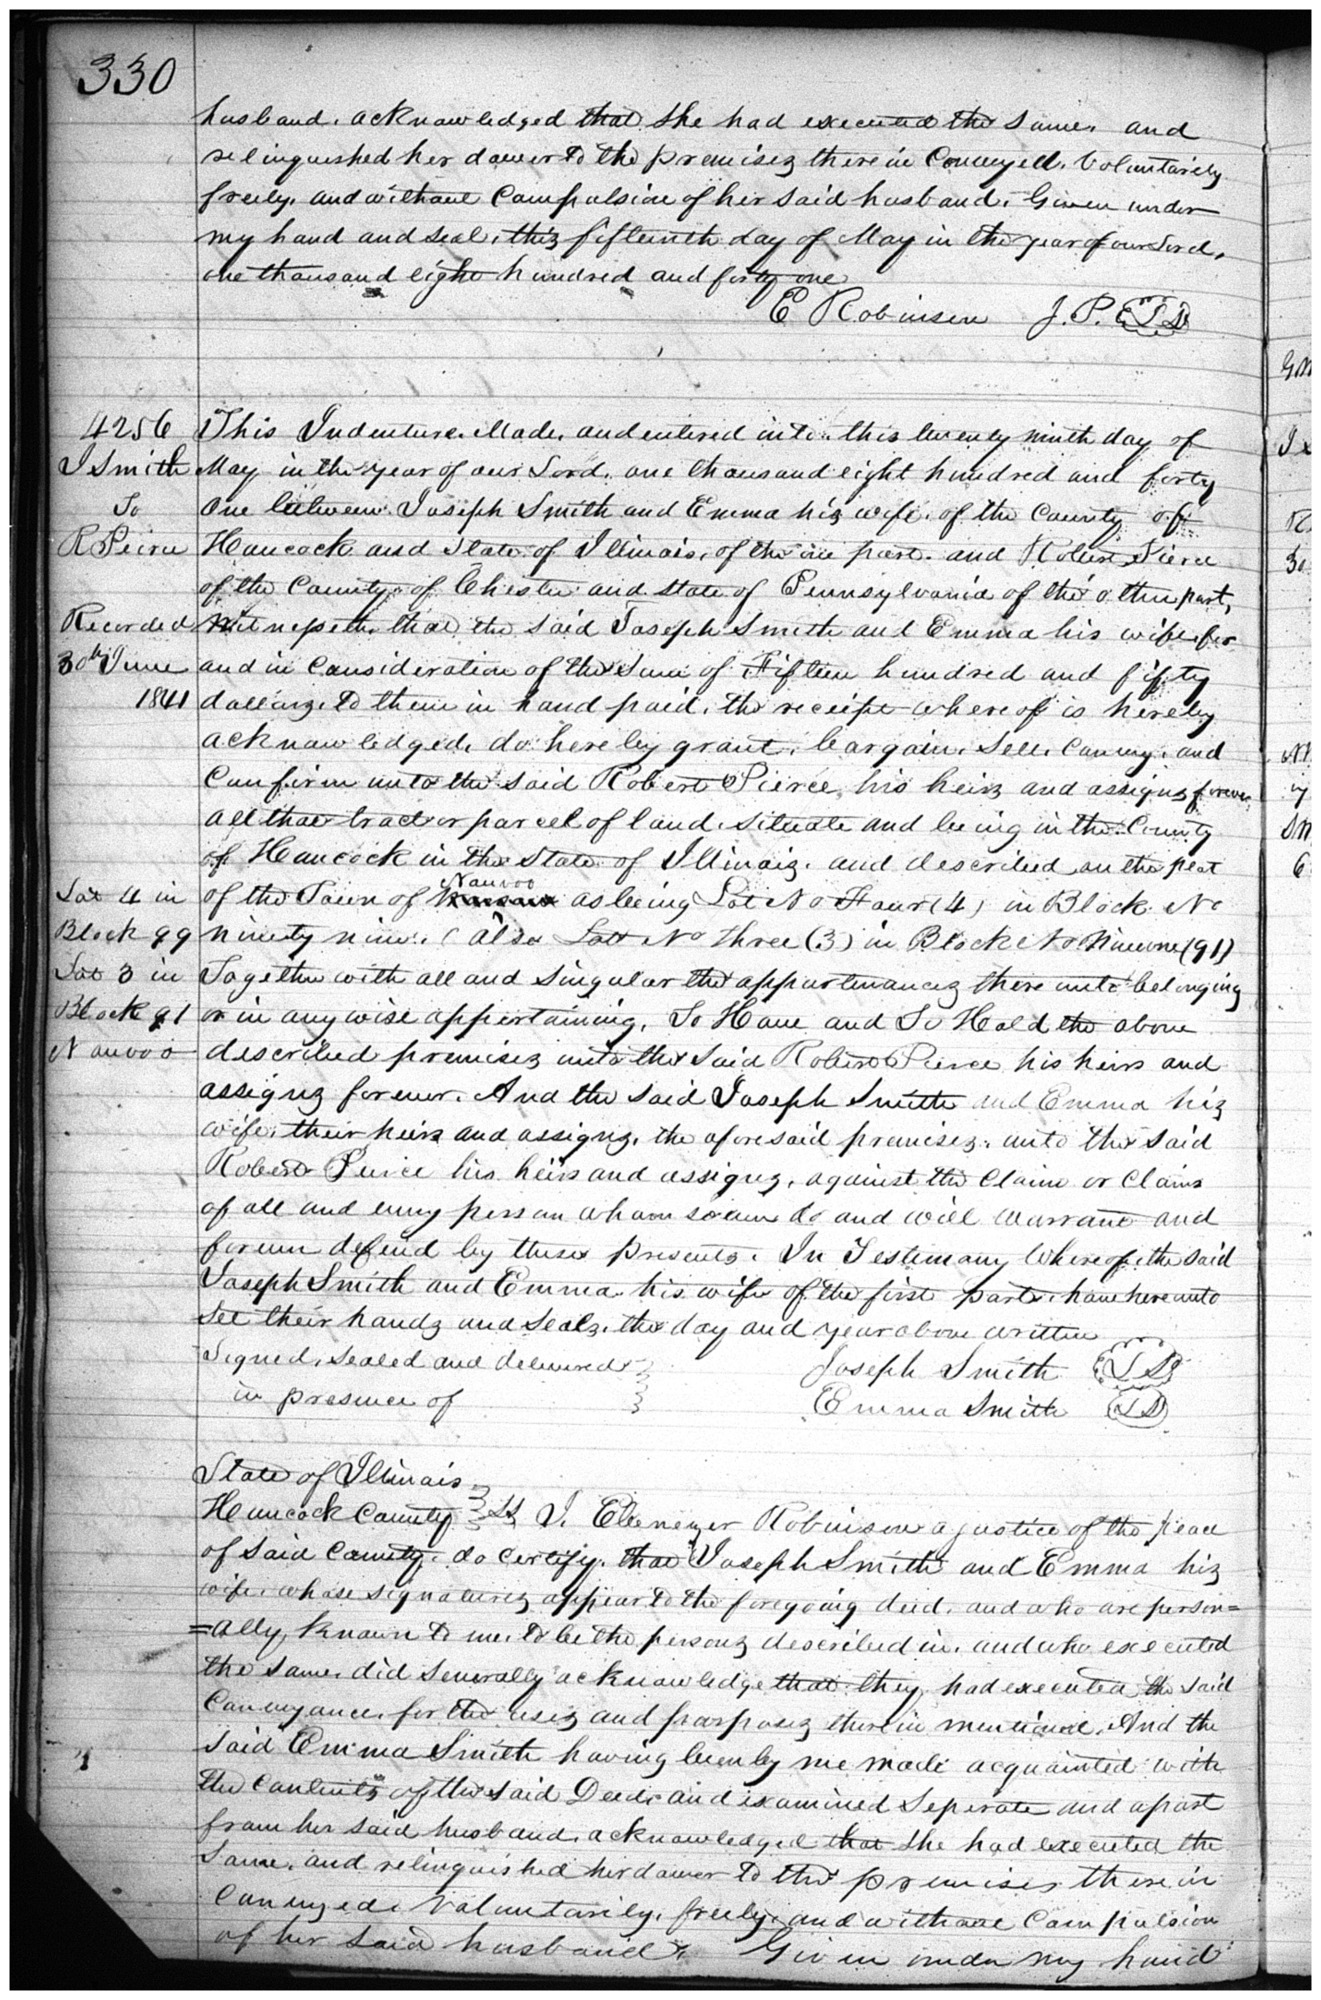 330
husband, acknowledged that she had executed the same, and
relinquished her dower to the premises therein Conveyed, Voluntarily
freely, and without Compulsion of her said husband. Given under
my hand and seal, this fifteenth day of May in the year of our Lord,
one thousand eight hundred and forty one
E Robinson J. P. LS
4256
J Smith
To
R Peirce
Recorded
30th June
1841
This Indenture. Made, and entered into, this twenty ninth day of
May in the year of our Lord, one thousand eight hundred and forty
One between Joseph Smith and Emma his wife, of the County of
Hancock and State of Illinois, of the one part, and Robert Pierce
of the County of Chester and State of Pennsylvania of the other part,
Witnesseth, that the said Joseph Smith and Emma his wife for
and in Consideration of the Sum of Fifteen hundred and fifty
dollars, to them in hand paid, the receipt whereof is hereby
acknowledged, do hereby grant, bargain, Sell, Convey, and
Confirm unto the said Robert Pierce, his heirs and assigns forever,
all that tract or parcel of land, situate and being in the County
of Hancock in the State of Illinois, and described on the plat
of the Town of Nauvoo as being Lot No Four (4) in Block No
ninety nine. (also Lot No three (3) in Block No Nineone (91)
Lot 4 in
Block 99
Lot 3 in
Block 91
Nauvoo
Together with all and Singular the appurtenances there unto belonging
or in anywise appertaining. To Have and To Hold the above
described premises unto the said Robert Pierce his heirs and
assigns forever. And the said Joseph Smith and Emma his
wife, their heirs and assigns, the aforesaid premises, unto the said
Robert Peirce his heirs and assigns, against the Claim or Claims
of all and every person whom soever do and will warrant and
forever defend by these presents. In Testimony Whereof, the said
Joseph Smith and Emma his wife of the first part, have hereunto
set their hands and seals, the day and year above written
Signed, Sealed and delivered
in presence of
Joseph Smith LS
Emma Smith LS
State of Illinois
Hancock County } SS I. Ebenezer Robinson a justice of the peace
of said County, do certify, that Joseph Smith and Emma his
wife, whose signatures appear to the foregoing deed, and who are person=
=ally known to me, to be the persons described in, and who executed
the same, did severally acknowledge that they had executed the said
Conveyance, for the uses and purposes therein mentioned. And the
said Emma Smith having been by me made acquainted with
the contents of the said Deed, and examined Seperate and apart
from her said husband, acknowledged that she had executed the
same, and relinquished her dower to the premises therein
Conveyed. Voluntarily, freely, and without Compulsion
of her said husband. Given under my hand